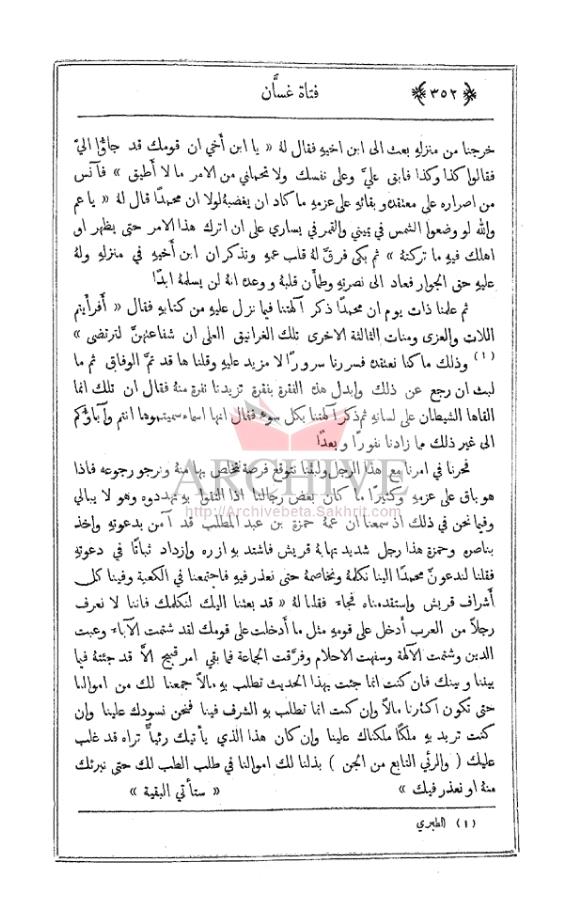 ﴿ ٣٥٢ ﴾ فتاة غسَّان
خرجنا من منزلهِ بعث الى ابن اخيهِ فقال لهُ « يا ابن أخي ان قومك قد جاؤوا اليَّ
فقالوا كذا وكذا فابقِ عليَّ وعلى نفسك ولا تحملني من الامر ما لا أطيق » فآنس
من اصراره على معتقده وبقائهِ على عزمهِ ما كاد ان يغضبهُ لولا ان محمدًا قال لهُ « يا عم
والله لو وضعوا الشمس في يميني والقمر في يساري على ان اترك هذا الامر حتى يظهر او
اهلك فيهِ ما تركتهُ » ثم بكى فرقَّ لهُ قلب عمهِ وتذكر ان ابن أخيهِ في منزلهِ ولهُ
عليهِ حق الجوار فعاد الى نصرتهِ وطأن قلبهُ ووعده انهُ لن يسلمهُ ابدًا
ثم علمنا ذات يوم ان محمدًا ذكر آلهتنا فيما نزل عليهِ من كتابهِ فقال « أفرأيتم
اللات والعزى ومنات الثالثة الاخرى تلك الغرانيق العلى ان شفاعتهنَّ لترتضى »
(١) وذلك ما كنا نعتقده فسررنا سرورًا لا مزيد عليهِ وقلنا ها قد تمَّ الوفاق ثم ما
لبث ان رجع عن ذلك وابدل هذه الفقرة بفقرة تزيدنا نفرة منهُ فقال ان تلك انما
القاها الشيطان على لسانهِ ثم ذكر آلهتنا بكل سوء فقال انها اسماء سميتموها انتم وآباؤكم
الى غير ذلك مما زادنا نفورًا وبعدًا
فحرنا في امرنا مع هذا الرجل ولبثنا نتوقع فرصة نتخلص بها منهُ ونرجو رجوعه فاذا
هو باق على عزمهِ وكثيرًا ما كان بعض رجالنا اذا التقوا بهِ تهددوه وهو لا يبالي
وفيما نحن في ذلك اذ سمعنا ان عمهُ حمزة بن عبد المطلب قد آمن بدعوتهِ واخذ
بناصرهِ وحمزة هذا رجل شديد تهابهُ قريش فاشتد بهِ ازره وازداد ثباتًا في دعوتهِ
فقلنا لندعونَّ محمدًا الينا نكلمهُ ونخاصمهُ حتى نعذر فيهِ فاجتمعنا في الكعبة وفينا كل
أشراف قريش واستقدمناه فجاء فقلنا لهُ « قد بعثنا اليك لنكلمك فاننا لا نعرف
رجلاً من العرب أدخل على قومهِ مثل ما أدخلت على قومك لقد شتمت الآباء وعبت
الدين وشتمت الآلهة وسفهت الاحلام وفرَّقت الجماعة فما بقي امر قبيح الاَّ قد جئتهُ فيما
بيننا وبينك فان كنت انما جئت بهذا الحديث تطلب بهِ مالاً جمعنا لك من اموالنا
حتى تكون اكثرنا مالاً وإن كنت انما تطلب بهِ الشرف فينا فنحن نسودك علينا وإن
كنت تريد بهِ ملكًا ملكناك علينا وإن كان هذا الذي يأتيك رئيًا تراه قد غلب
عليك ( والرئي التابع من الجن ) بذلنا لك اموالنا في طلب الطب لك حتى نبرئك
منهُ او نعذر فيك » « ستأتي البقية »
(١) الطبري
ARCHIVE
http://Archivebeta.Sakhrit.com